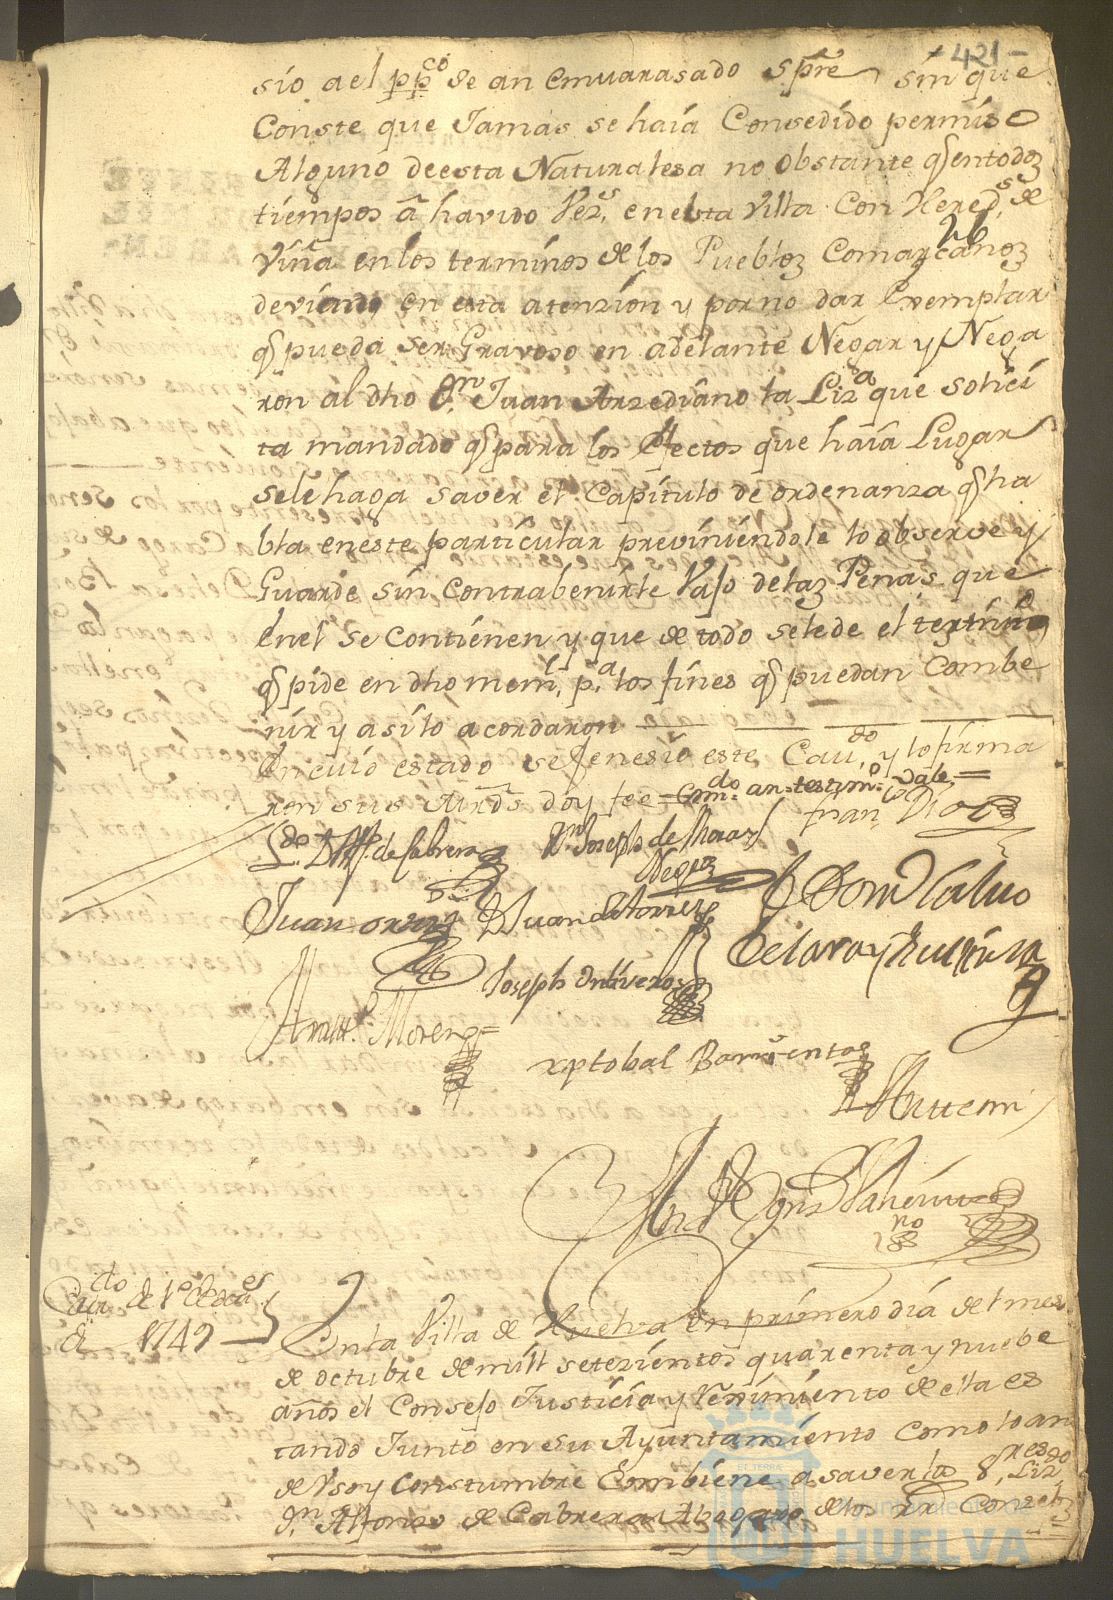 - 421 -
sio a el pp.co se an emvarasado spre sin que
Conste que Jamas se haia Consedido permiso
Alguno de esta Naturalesa no obstante q entodoz
tiempos â havido Vez.s en esta Villa Con Hered.s de
Viña en los terminos de los Pueblos Comarcanos
deviendo en esta atenzion y por no dar Exemplar
q pueda ser Gravoso en adelante Negar y Nega
ron al dho D.n Juan Arzediano la Liz.a que solici
ta mandado q para los efectos que haia Lugar
sele haga saver el Capitulo de ordenanza q ha
bla en este particular previniendole lo observe y
Guarde sin contrabenirle Vajo de laz Penas que
En el se contienen y que de todo sele de el termino
q pide en dho mem.l p.a los fines q puedan combe
nir y asi lo acordaron
En cuio estado se feneslo este Cav.do y lo firma
ron sus doy fee = em.do an = testim.o Vale =
L.do D. Alf. de Cabrera
D.n Joseph de
Juan
D. Juan de Torres
Joseph Ontiveros
de Lara y
Moreno
xptobal Barrientos
Ante mi
Cav.do de 1.o de
de 1749
En la Villa de Huelva en primero dia del mes
de octubre de mill setezientos quarenta y nuebe
años el Consejo Justicia y Reximiento de ella es
tando Junto en su Ayuntamiento como lo an
de Vso y Constumbre Combiene a saver los S.res Liz.do
D.n Alfonso de Cabrera Abogado de los R.s Conzejos
Ayuntamiento de
HUELVA